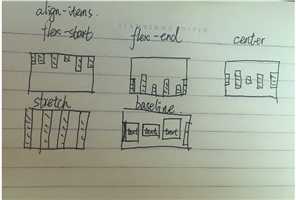 align-items.
flex-start
flex-end
center
stretch
baseline
text text text